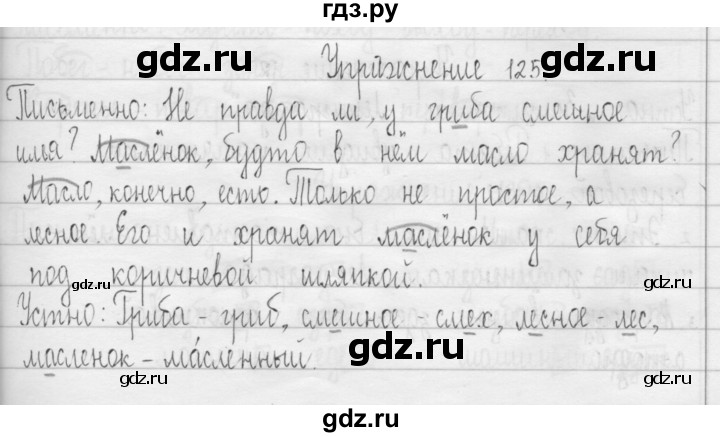 гдз.ру
Упражнение 125
Письменно: Не правда ли, у гриба смешное
имя? Маслёнок, будто в нём масло хранят?
Масло, конечно, есть. Только не простое, а
лесное Его и хранят маслёнок у себя
под коричневой шляпкой.
Устно: Гриба - гриб, смешное - смех, лесное - лес,
масленок - ма́сленный.
gdz.ru
gdz.ru
gdz.ru
gdz.ru
gdz.ru
gdz.ru
gdz.ru
gdz.ru
gdz.ru
gdz.ru
gdz.ru
gdz.ru
gdz.ru